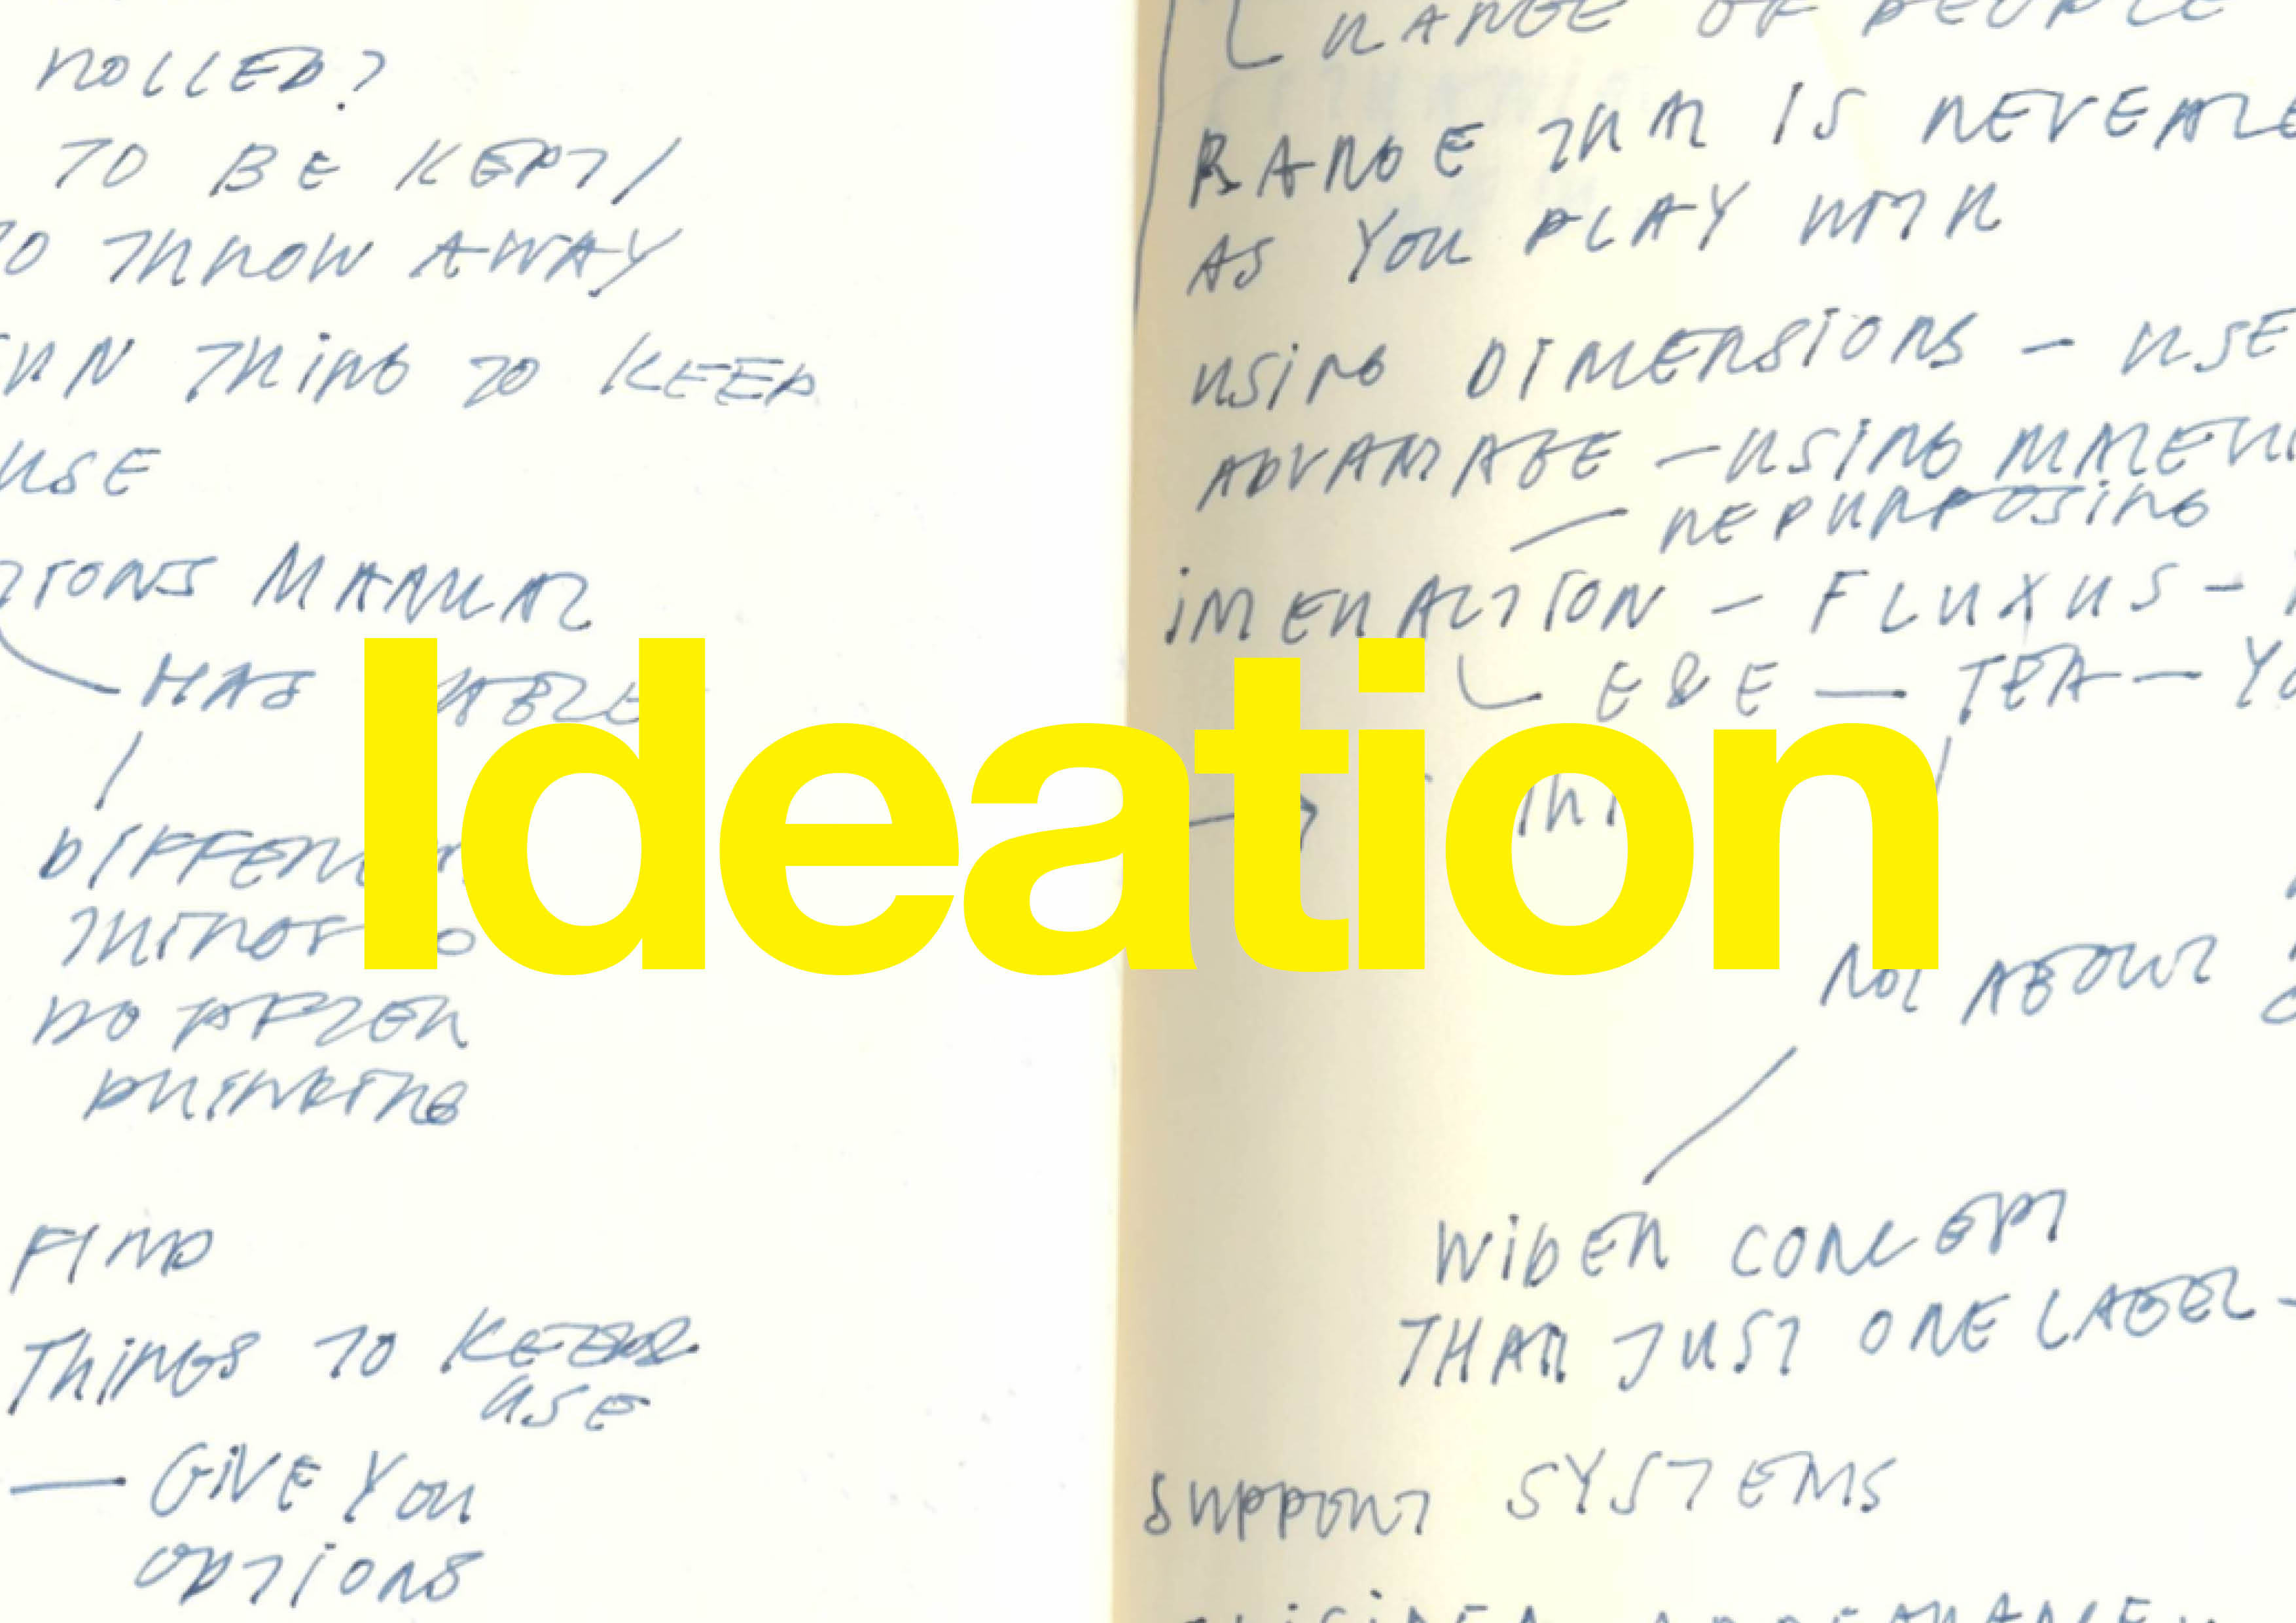 ROLLED?
TO BE KEPT/
TO THROW AWAY
FUN THING TO KEEP
USE
TIONS MANUAL
HAS
DIFFEREN
THINGS
DO AFTER
DRINKING
FIND
THINGS TO
USE
— GIVE YOU
OPTIONS
RANGE OF PEOPLE
RANGE THAT IS REVEALE
AS YOU PLAY WITH
USING DIMENSIONS – USE
ADVANTAGE – USING MATERI
— REPURPOSING
INTERACTION – FLUXUS –
E&E — TEA — YO
Ideation
NOT ABOUT
WIDER CONCEPT
THAN JUST ONE LABEL –
SUPPORT SYSTEMS